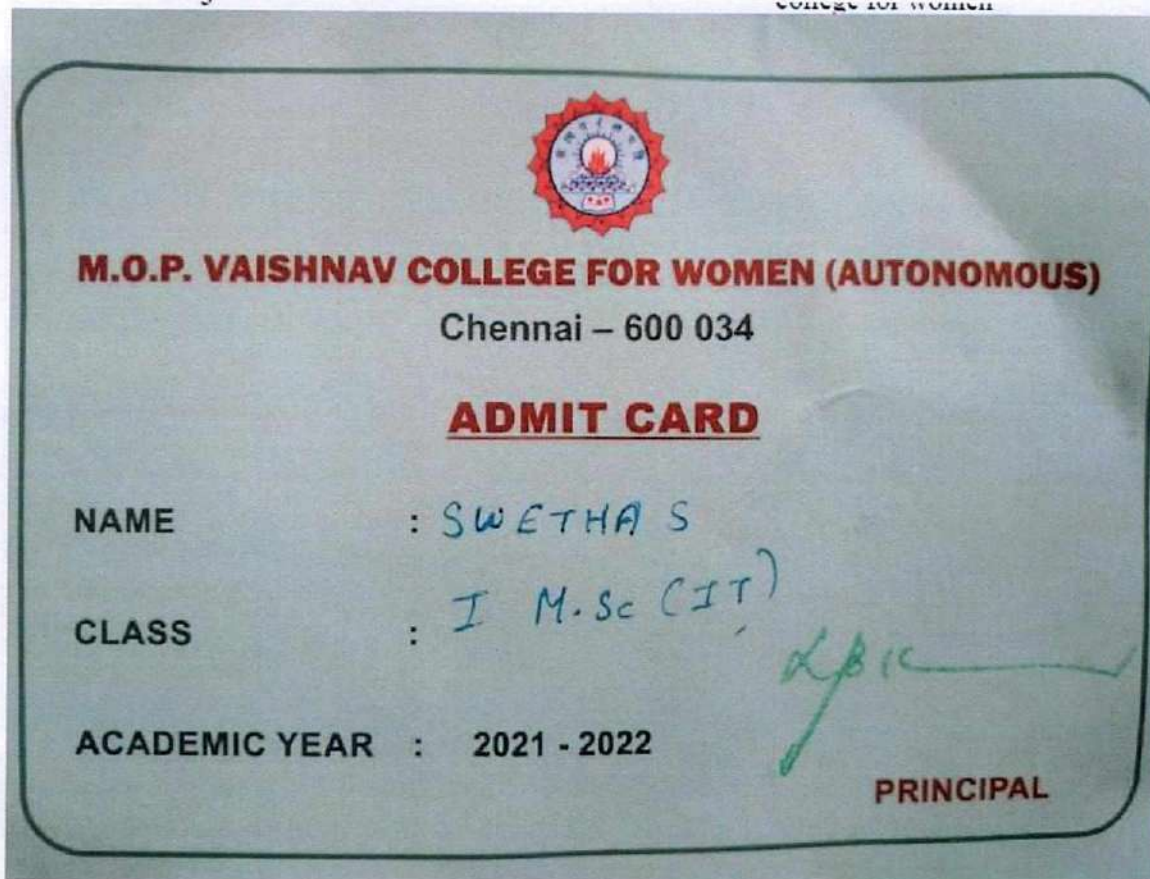 college for women
M.O.P. VAISHNAV COLLEGE FOR WOMEN (AUTONOMOUS)
Chennai – 600 034
ADMIT CARD
NAME : SWETHA S
CLASS : I M.Sc (IT)
ACADEMIC YEAR : 2021 - 2022
PRINCIPAL